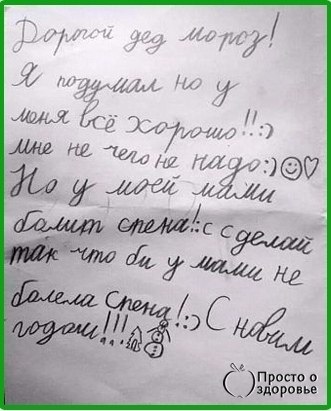 Дорогой дед мороз!
Я подумал но у
меня всё хорошо!!:)
мне не чего не надо:)☺♡
Но у моей мами
болит спена!:с сделай
так что би у мами не
болела Спена!:) С новим
годом!!!
Просто о
здоровье